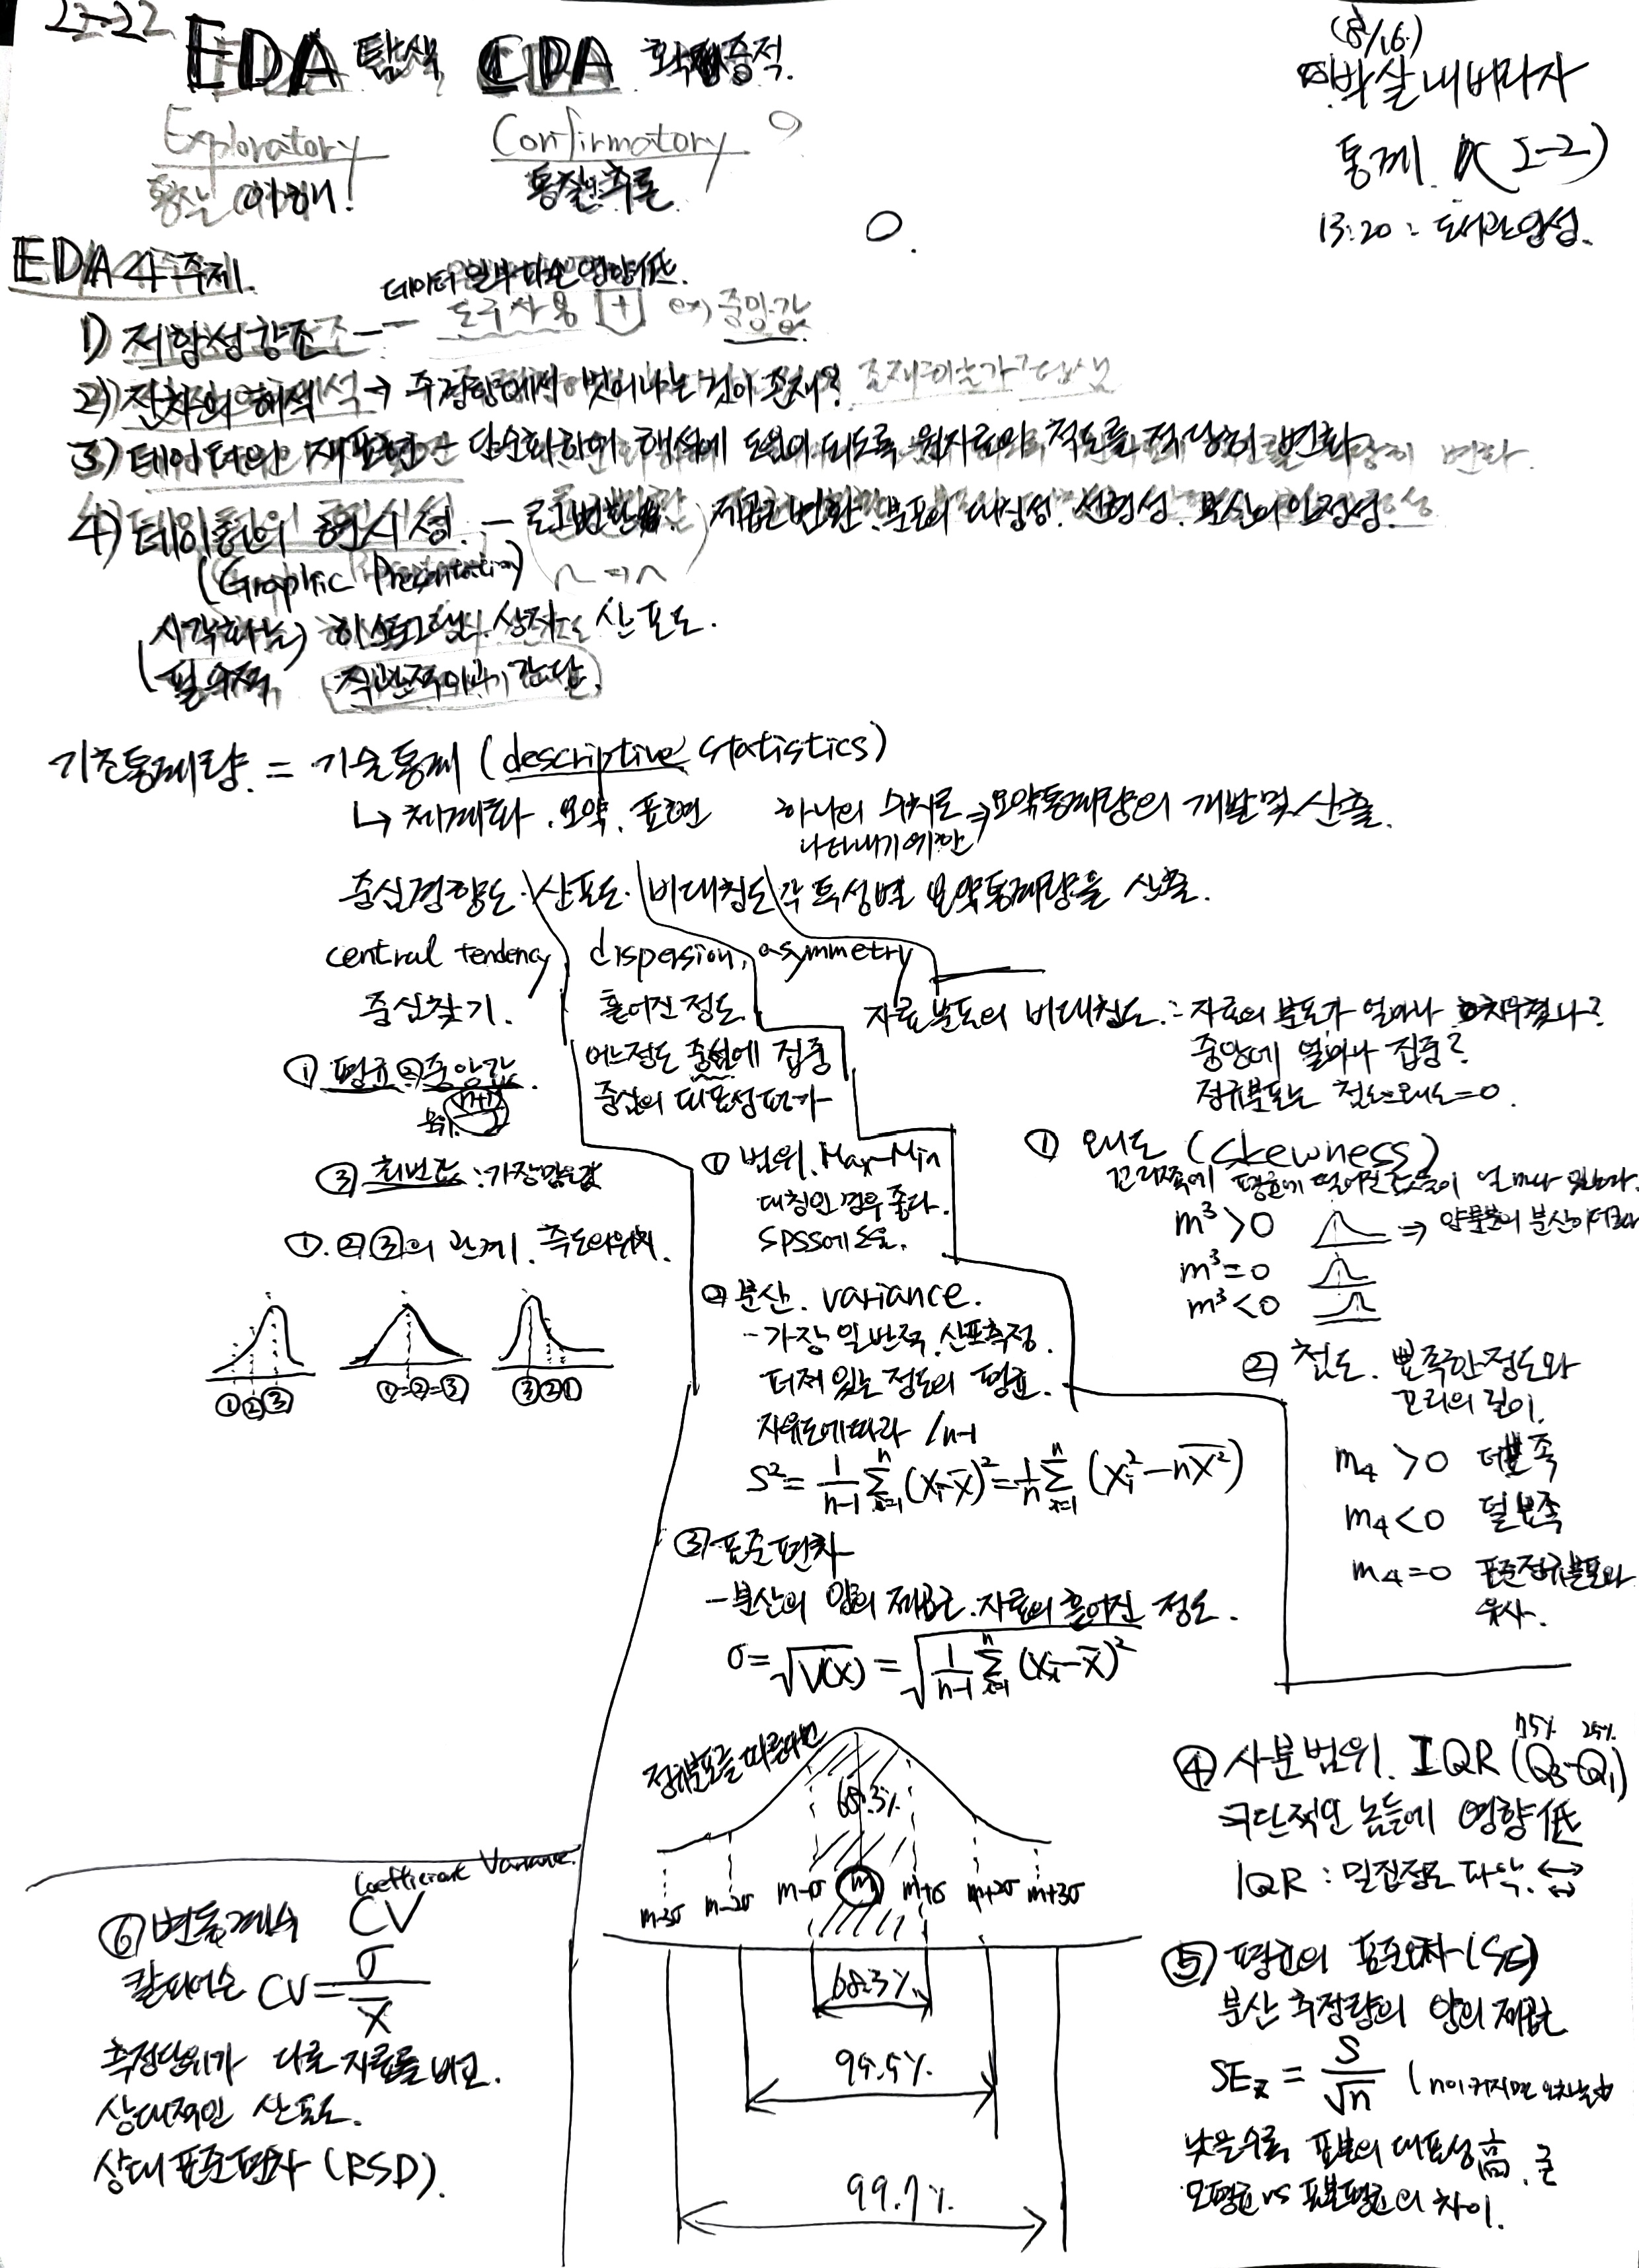 22-22
EDA 탐색 CDA 확증적.
Exploratory Confirmatory
이해! 통찰 추론
(8/16)
박살내버리자
통계 (2-2)
13:20 :
EDA 4주제.
데이터 일부 영향低.
1) 저항성 강조 -- 도구사용 [+] ex) 중앙값
2) 잔차의 해석 → 주경향에서 벗어나는 것이 존재?
3) 데이터의 재표현 - 단순화하여 해석에 도움이 되도록 원자료의 척도를 적당히 변화
4) 데이터의 현시성. - 로그변환. 제곱근변환. 분포의 대칭성. 선형성. 분산의 안정성.
(Graphic Presentation)
시각화는) 히스토그램. 상자. 산포도.
필수적, 직관적이고 간단.
기초통계량. = 기술통계 (descriptive statistics)
↳ 체계화. 요약. 표현 하나의 수치로 ⇒ 요약통계량의 개발 및 산출.
나타내기 위한
중심경향도. 산포도. 비대칭도 각 특성별 요약통계량을 산출.
central tendency dispersion, asymmetry
중심찾기. 흩어진 정도.
자료분포의 비대칭도. : 자료의 분포가 얼마나 치우쳤나?
중앙에 얼마나 집중?
정규분포는 첨도=왜도=0.
① 평균 ② 중앙값.
③ 최빈값 : 가장 많은 값
①.②③의 관계. 측도의 위치.
①②③ ①=②=③ ③②①
어느정도 중심에 집중
중심의 대표성 평가
① 범위. Max-Min
대칭인 경우 좋다.
SPSS에
② 분산. variance.
- 가장 일반적. 산포측정.
퍼져 있는 정도의 평균.
자유도에따라 /n-1
S² = 1/(n-1) Σ(i=1, n) (Xi-X̄)² = 1/n Σ(i=1, n) (Xi²-nX̄²)
③ 표준편차
- 분산의 양의 제곱근. 자료의 흩어진 정도.
σ = √V(X) = √(1/(n-1) Σ(i=1, n) (Xi-X̄)²)
① 왜도 (Skewness)
꼬리쪽에 평균에 떨어진 값들이 얼마나 있는가.
m³>0 ⇒ 분산이 더크다
m³=0
m³<0
② 첨도. 뾰족한정도와
꼬리의 길이.
m₄ >0 더뾰족
m₄<0 덜뾰족
m₄=0 표준정규분포와
유사.
정규분포를 따른다면
68.3%
m-3σ m-2σ m-σ m m+σ m+2σ m+3σ
68.3%
95.5%
99.7%
④ 사분범위. IQR (Q3-Q1)
75% 25%
극단적인 놈들에 영향低
IQR : 밀집정도 파악. ↔
⑤ 평균의 표준오차 (SE)
분산 추정량의 양의 제곱근
SEx̄ = S/√n (n이 커지면
낮을수록 표본의 대표성 高.
모평균 vs 표본평균의 차이.
Coefficient Variance.
⑥ 변동계수 CV
칼피어슨 CV = σ/X̄
측정단위가 다른 자료를 비교.
상대적인 산포도.
상대표준편차 (RSD).